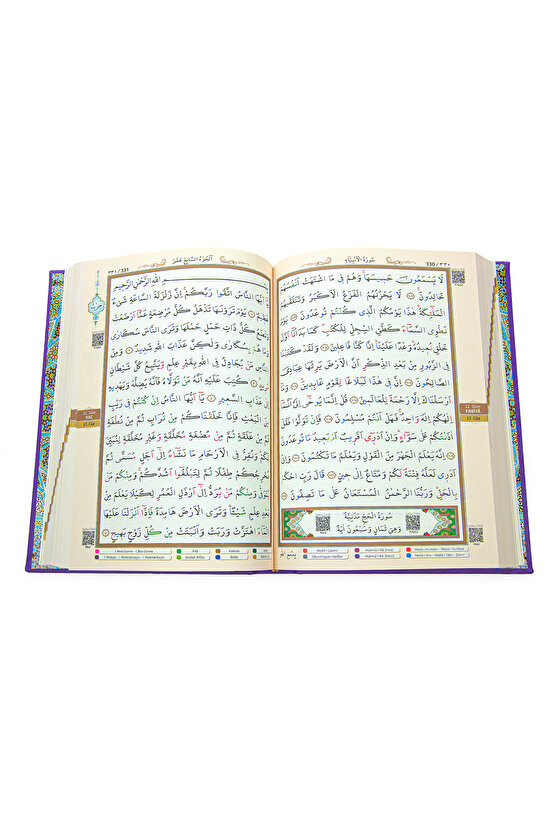 330 / ٣٣٠
سُورَةُ الْأَنْبِيَاءِ
لَا يَسْمَعُونَ حَسِيسَهَا وَهُمْ فِي مَا اشْتَهَتْ اَنْفُسُهُمْ
خَالِدُونَ لَا يَحْزُنُهُمُ الْفَزَعُ الْاَكْبَرُ وَتَتَلَقّٰيهُمُ
الْمَلٰٓئِكَةُ هٰذَا يَوْمُكُمُ الَّذِي كُنْتُمْ تُوعَدُونَ يَوْمَ
نَطْوِي السَّمَٓاءَ كَطَيِّ السِّجِلِّ لِلْكُتُبِ كَمَا بَدَأْنَٓا اَوَّلَ
خَلْقٍ نُعِيدُهُ وَعْدًا عَلَيْنَا اِنَّا كُنَّا فَاعِلِينَ وَلَقَدْ كَتَبْنَا
فِي الزَّبُورِ مِنْ بَعْدِ الذِّكْرِ اَنَّ الْاَرْضَ يَرِثُهَا عِبَادِيَ
الصَّالِحُونَ اِنَّ فِي هٰذَا لَبَلَاغًا لِقَوْمٍ عَابِدِينَ وَمَٓا
اَرْسَلْنَاكَ اِلَّا رَحْمَةً لِلْعَالَمِينَ قُلْ اِنَّمَا يُوحٰٓى اِلَيَّ اَنَّمَٓا
اِلٰهُكُمْ اِلٰهٌ وَاحِدٌ فَهَلْ اَنْتُمْ مُسْلِمُونَ فَاِنْ تَوَلَّوْا فَقُلْ
اٰذَنْتُكُمْ عَلٰى سَوَٓاءٍ وَاِنْ اَدْرِٓي اَقَرِيبٌ اَمْ بَعِيدٌ مَا تُوعَدُونَ
اِنَّهُ يَعْلَمُ الْجَهْرَ مِنَ الْقَوْلِ وَيَعْلَمُ مَا تَكْتُمُونَ وَاِنْ
اَدْرِي لَعَلَّهُ فِتْنَةٌ لَكُمْ وَمَتَاعٌ اِلٰى حِينٍ قَالَ رَبِّ احْكُمْ
بِالْحَقِّ وَرَبُّنَا الرَّحْمٰنُ الْمُسْتَعَانُ عَلٰى مَا تَصِفُونَ
سُورَةُ الْحَجِّ مَدَنِيَّةٌ
وَهِيَ ثَمَانٍ وَسَبْعُونَ اٰيَةً
ENBİYÂ
17. Cüz
٣٣١ / 331
اَلْجُزْءُ السَّابِعَ عَشَرَ
اللّٰهِ الرَّحْمٰنِ الرَّحِيمِ
يَٓا اَيُّهَا النَّاسُ اتَّقُوا رَبَّكُمْ اِنَّ زَلْزَلَةَ السَّاعَةِ شَيْءٌ
يَوْمَ تَرَوْنَهَا تَذْهَلُ كُلُّ مُرْضِعَةٍ عَمَّٓا اَرْضَعَتْ
وَتَضَعُ كُلُّ ذَاتِ حَمْلٍ حَمْلَهَا وَتَرَى النَّاسَ سُكَارٰى
هُمْ بِسُكَارٰى وَلٰكِنَّ عَذَابَ اللّٰهِ شَدِيدٌ وَمِنَ
مَنْ يُجَادِلُ فِي اللّٰهِ بِغَيْرِ عِلْمٍ وَيَتَّبِعُ كُلَّ شَيْطَانٍ
كُتِبَ عَلَيْهِ اَنَّهُ مَنْ تَوَلَّاهُ فَاَنَّهُ يُضِلُّهُ وَيَهْدِيهِ
عَذَابِ السَّعِيرِ يَٓا اَيُّهَا النَّاسُ اِنْ كُنْتُمْ فِي رَيْبٍ
الْبَعْثِ فَاِنَّا خَلَقْنَاكُمْ مِنْ تُرَابٍ ثُمَّ مِنْ نُطْفَةٍ
عَلَقَةٍ ثُمَّ مِنْ مُضْغَةٍ مُخَلَّقَةٍ وَغَيْرِ مُخَلَّقَةٍ لِنُبَيِّنَ
وَنُقِرُّ فِي الْاَرْحَامِ مَا نَشَٓاءُ اِلٰٓى اَجَلٍ مُسَمًّى ثُمَّ
نُخْرِجُكُمْ طِفْلًا ثُمَّ لِتَبْلُغُٓوا اَشُدَّكُمْ وَمِنْكُمْ مَنْ
وَمِنْكُمْ مَنْ يُرَدُّ اِلٰٓى اَرْذَلِ الْعُمُرِ لِكَيْلَا يَعْلَمَ مِنْ
بَعْدِ عِلْمٍ شَيْئًا وَتَرَى الْاَرْضَ هَامِدَةً فَاِذَٓا اَنْزَلْنَا عَلَيْهَا
الْمَٓاءَ اهْتَزَّتْ وَرَبَتْ وَاَنْبَتَتْ مِنْ كُلِّ زَوْجٍ بَهِيجٍ
HAC
17. Cüz